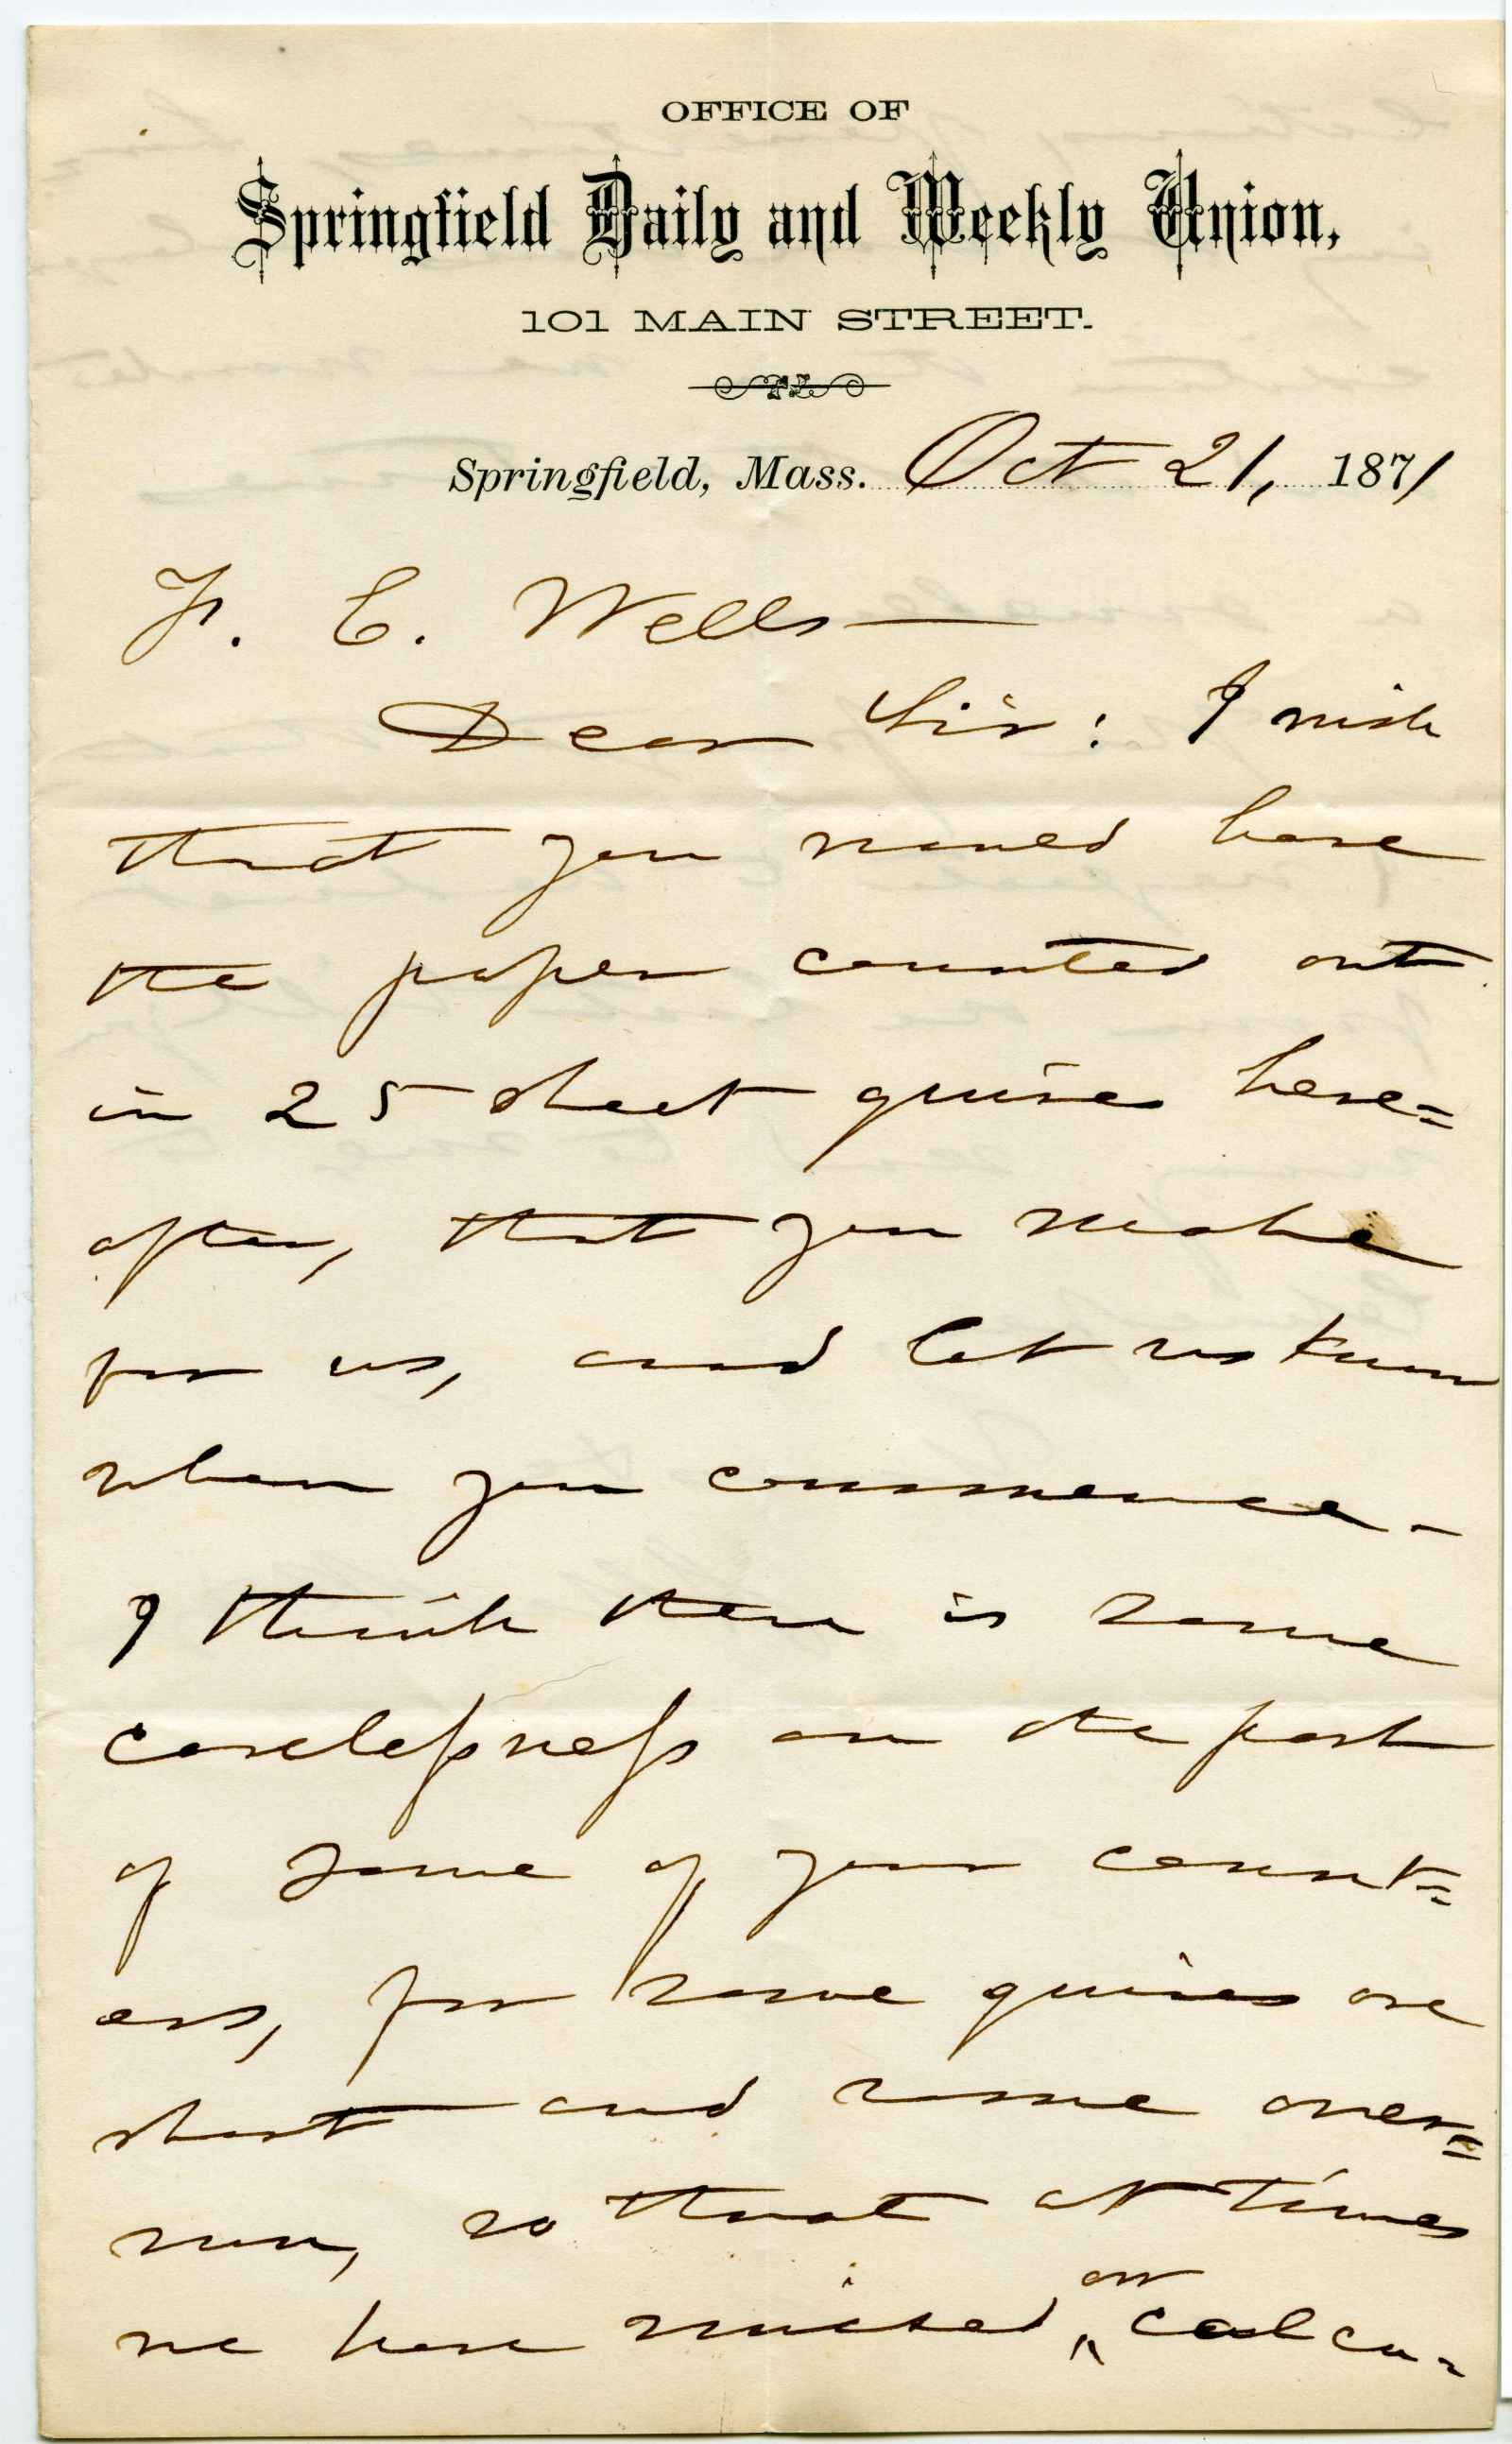 OFFICE OF
Springfield Daily and Weekly Union,
101 MAIN STREET.
Springfield, Mass. Oct 21, 1871
F. E. Wells
Dear Sir: I wish
that you would have
the paper counted out
in 25 sheet quires here=
after, that you make
for us, and let us know
when you commence.
I think there is some
carelessness on the part
of some of your count=
ers, for some quires are
short and some over=
run, so that at times
we have missed our calcu-